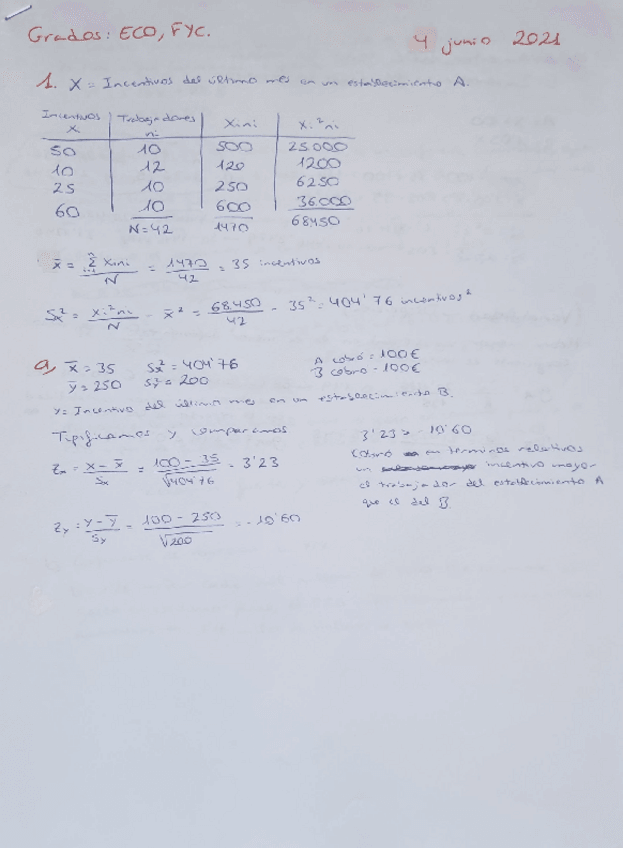 Grados: ECO, FYC.
4 junio 2021
1. X = Incentivos del último mes en un establecimiento A.
Incentivos Xi | Trabajadores ni | Xini | Xi²ni
50 | 10 | 500 | 25000
10 | 12 | 120 | 1200
25 | 10 | 250 | 6250
60 | 10 | 600 | 36000
N=42 | 1470 | 68450
x̄ = Σ Xini / N = 1470 / 42 = 35 incentivos
Sx² = Xi²ni / N - x̄² = 68.450 / 42 - 35² = 404'76 incentivos²
a) x̄ = 35 Sx² = 404'76 A cobró = 100€
ȳ = 250 Sy² = 200 B cobro = 100€
Y = Incentivo del último mes en un establecimiento B.
Tipificamos y comparamos
Zx = x - x̄ / Sx = 100 - 35 / √404'76 = 3'23
Zy = y - ȳ / Sy = 100 - 250 / √200 = -10'60
3'23 > -10'60
Cobró en terminos relativos
un incentivo mayor
el trabajador del establecimiento A
que el del B.